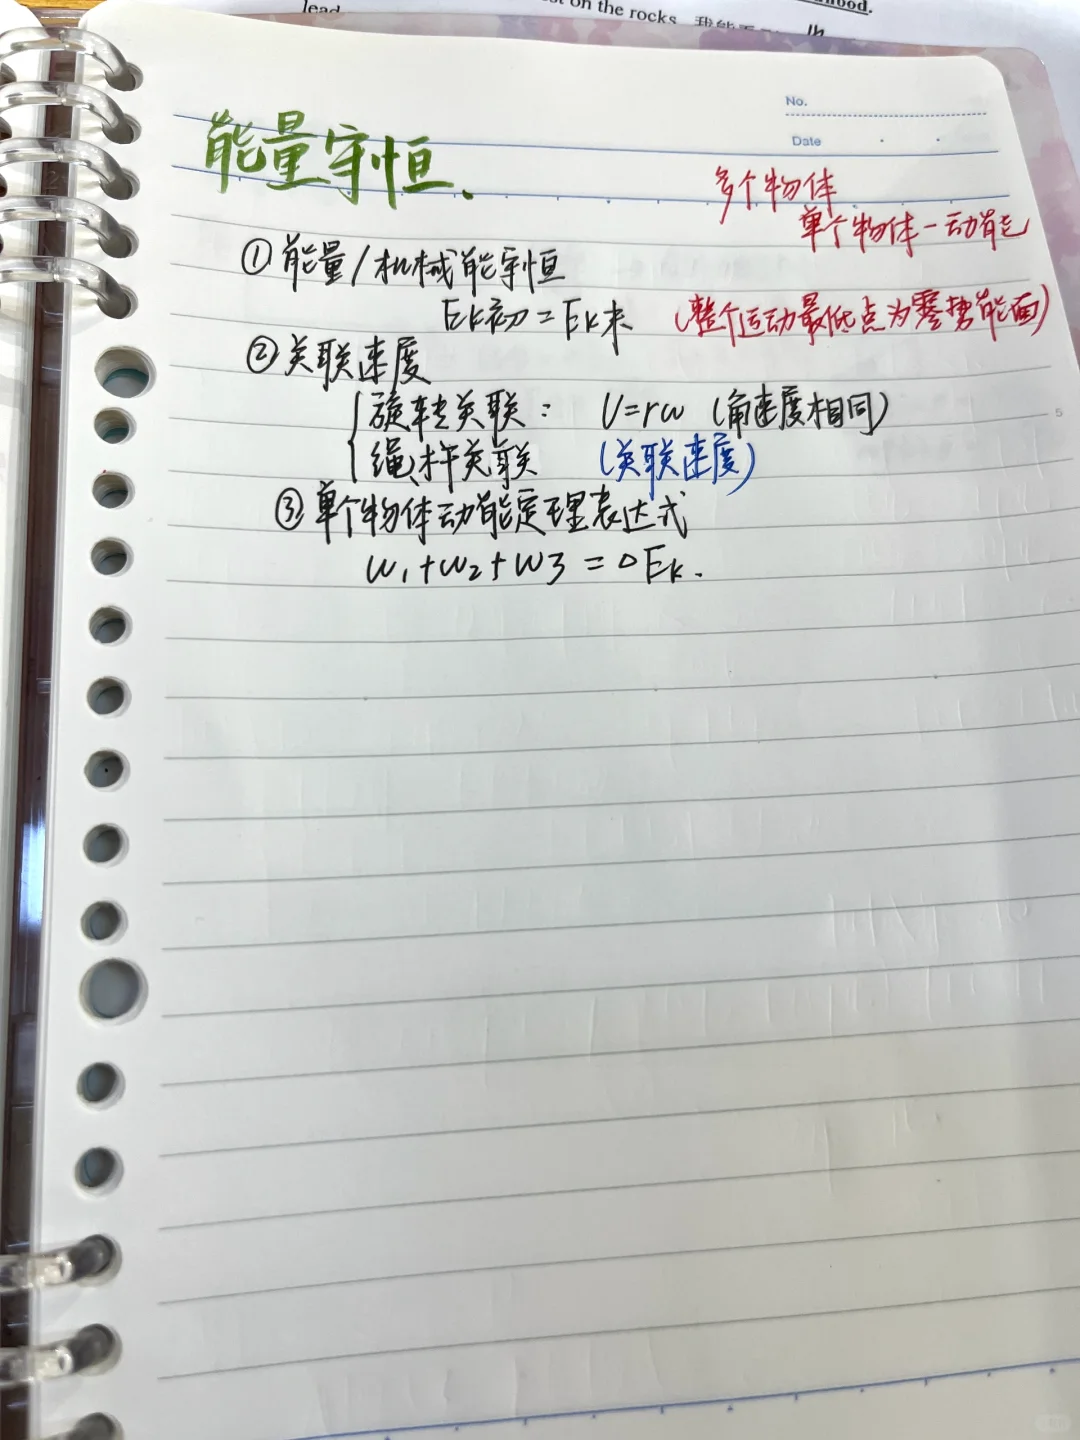 on the rocks.
lead
No.
Date
能量守恒、
多个物体
单个物体-动能
①能量/机械能守恒
Ek初=Ek末 (整个运动最低点为零势能面)
②关联速度
旋转关联: V=rω (角速度相同)
绳、杆关联 (关联速度)
③单个物体动能定理表达式
W₁+W₂+W3=△Ek.
5